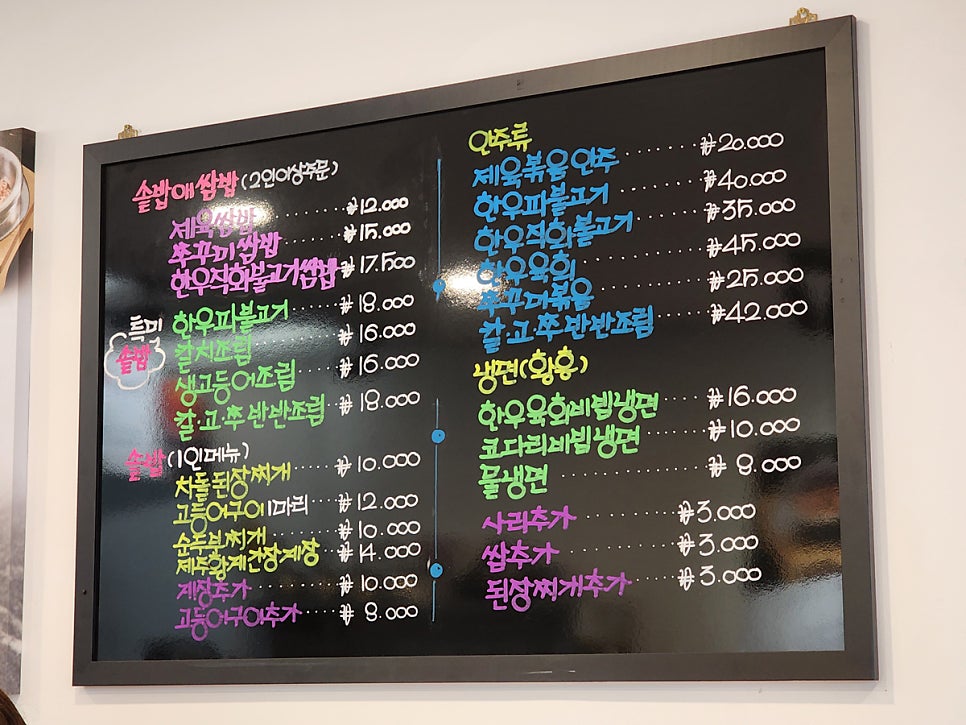 솥밥애쌈밥(2인이상주문)
제육쌈밥 ₩12.000
쭈꾸미쌈밥 ₩15.000
한우직화불고기쌈밥 ₩17.500
특미
솥밥
한우파불고기 ₩18.000
갈치조림 ₩16.000
생고등어조림 ₩16.000
갈·고·쭈 반반조림 ₩18.000
솥밥(1인메뉴)
차돌된장찌개 ₩10.000
고등어구이1마리 ₩12.000
순두부찌개 ₩10.000
제주황게간장게장 ₩14.000
게장추가 ₩10.000
고등어구이추가 ₩8.000
안주류
제육볶음안주 ₩20.000
한우파불고기 ₩40.000
한우직화불고기 ₩35.000
한우육회 ₩45.000
쭈꾸미볶음 ₩25.000
갈·고·쭈 반반조림 ₩42.000
냉면(함흥)
한우육회비빔냉면 ₩16.000
코다리비빔냉면 ₩10.000
물냉면 ₩8.000
사리추가 ₩3.000
쌈추가 ₩3.000
된장찌개추가 ₩3.000